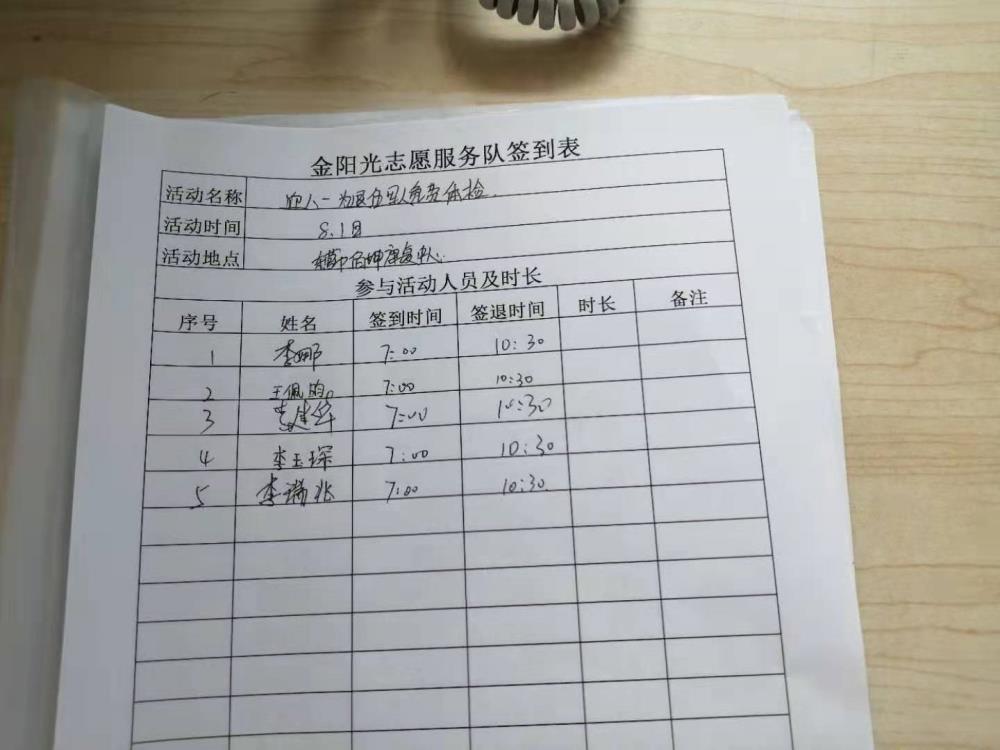 金阳光志愿服务队签到表
活动名称 迎八一为退伍军人免费体检
活动时间 8.1日
活动地点 康复中心
参与活动人员及时长
序号 姓名 签到时间 签退时间 时长 备注
1 李娜 7:00 10:30
2 王佩 7:00 10:30
3 建华 7:00 10:30
4 李玉琛 7:00 10:30
5 李瑞兆 7:00 10:30